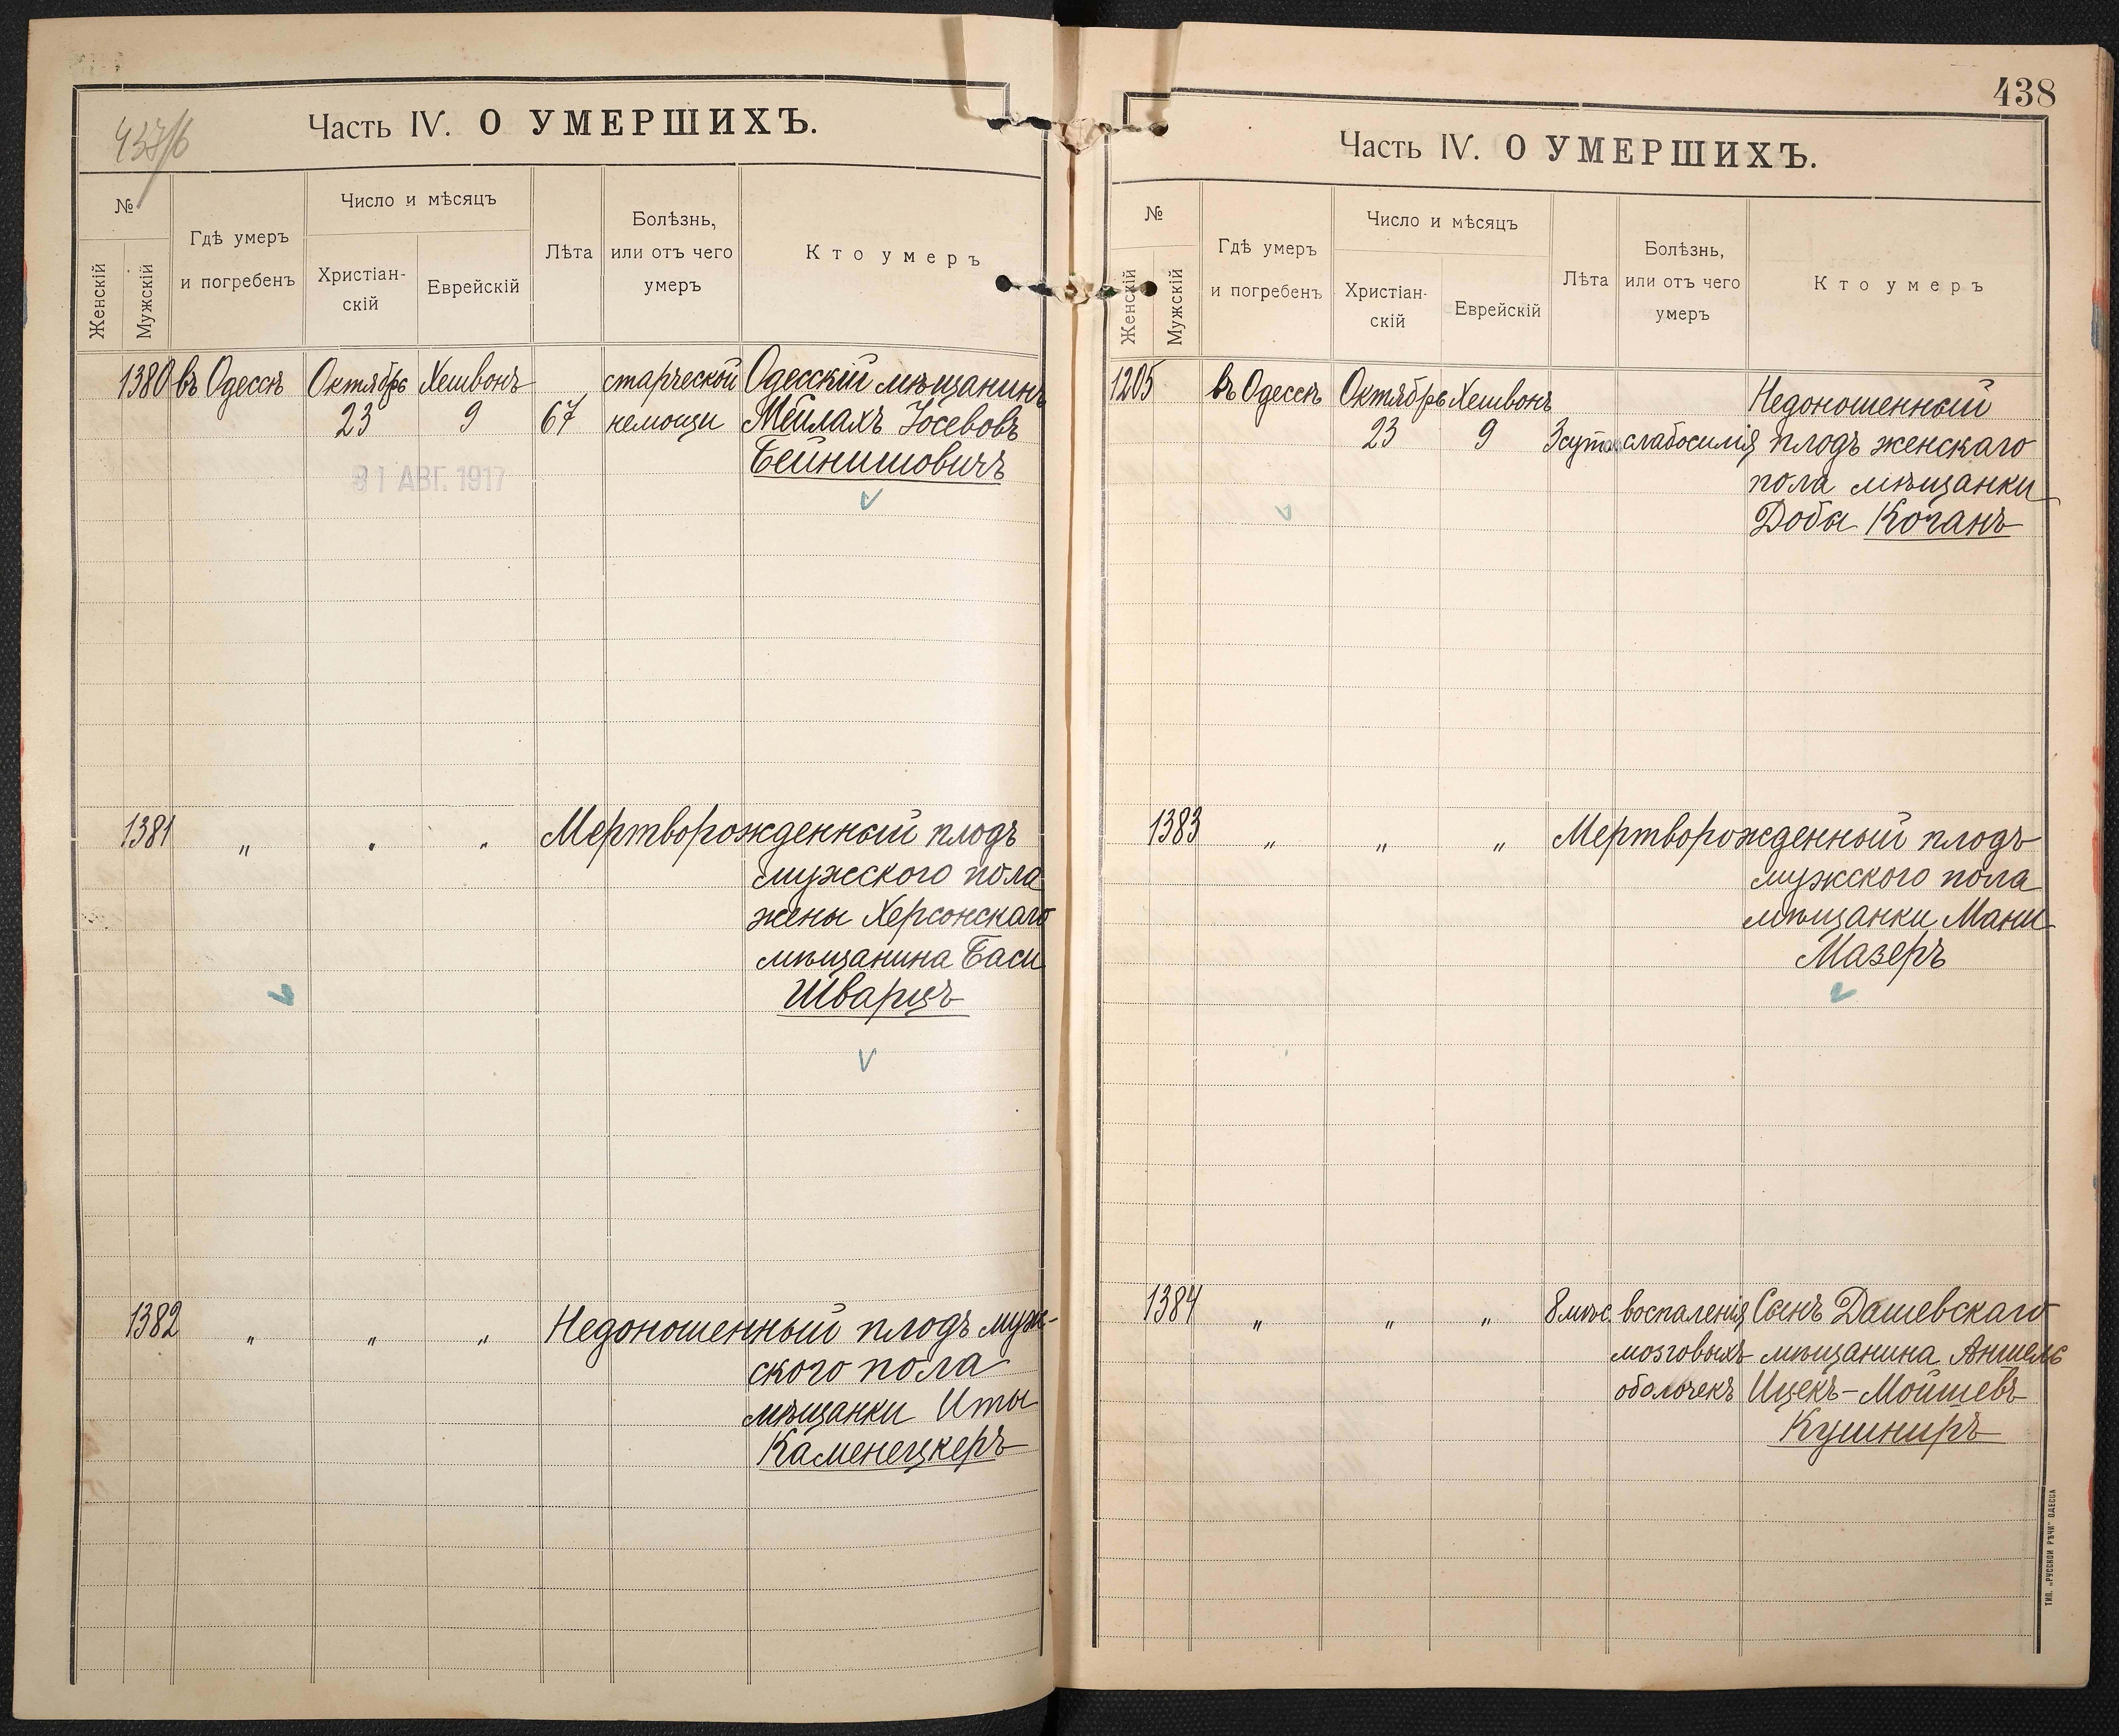 437/б
Часть IV. О УМЕРШИХЪ.
№
Женскій
Мужскій
Гдѣ умеръ
и погребенъ
Число и мѣсяцъ
Христіан-
скій
Еврейскій
Лѣта
Болѣзнь,
или отъ чего
умеръ
Кто умеръ
1380 въ Одессѣ Октябрь Хешвонъ старческой Одесскій мѣщанинъ
23 9 67 немощи Мейлахъ Іосевовъ
Бейнишовичъ
31 АВГ. 1917
1381 „ „ „ Мертворожденный плодъ
мужского пола
жены Херсонскаго
мѣщанина Баси
Шварцъ
1382 „ „ „ Недоношенный плодъ муж-
ского пола
мѣщанки Иты
Каменецкеръ
438
Часть IV. О УМЕРШИХЪ.
№
Женскій
Мужскій
Гдѣ умеръ
и погребенъ
Число и мѣсяцъ
Христіан-
скій
Еврейскій
Лѣта
Болѣзнь,
или отъ чего
умеръ
Кто умеръ
1205 въ Одессѣ Октябрь Хешвонъ Недоношенный
23 9 3 сут. слабосилія плодъ женскаго
пола мѣщанки
Добы Коганъ
1383 „ „ „ Мертворожденный плодъ
мужского пола
мѣщанки Мани
Мазеръ
1384 „ „ „ 8 мѣс. воспаленія Сынъ Дашевскаго
мозговыхъ мѣщанина Аншель
оболочекъ Ицекъ-Мойшевъ
Кушниръ
ТИП. „РУССКОЙ РѢЧИ" ОДЕССА